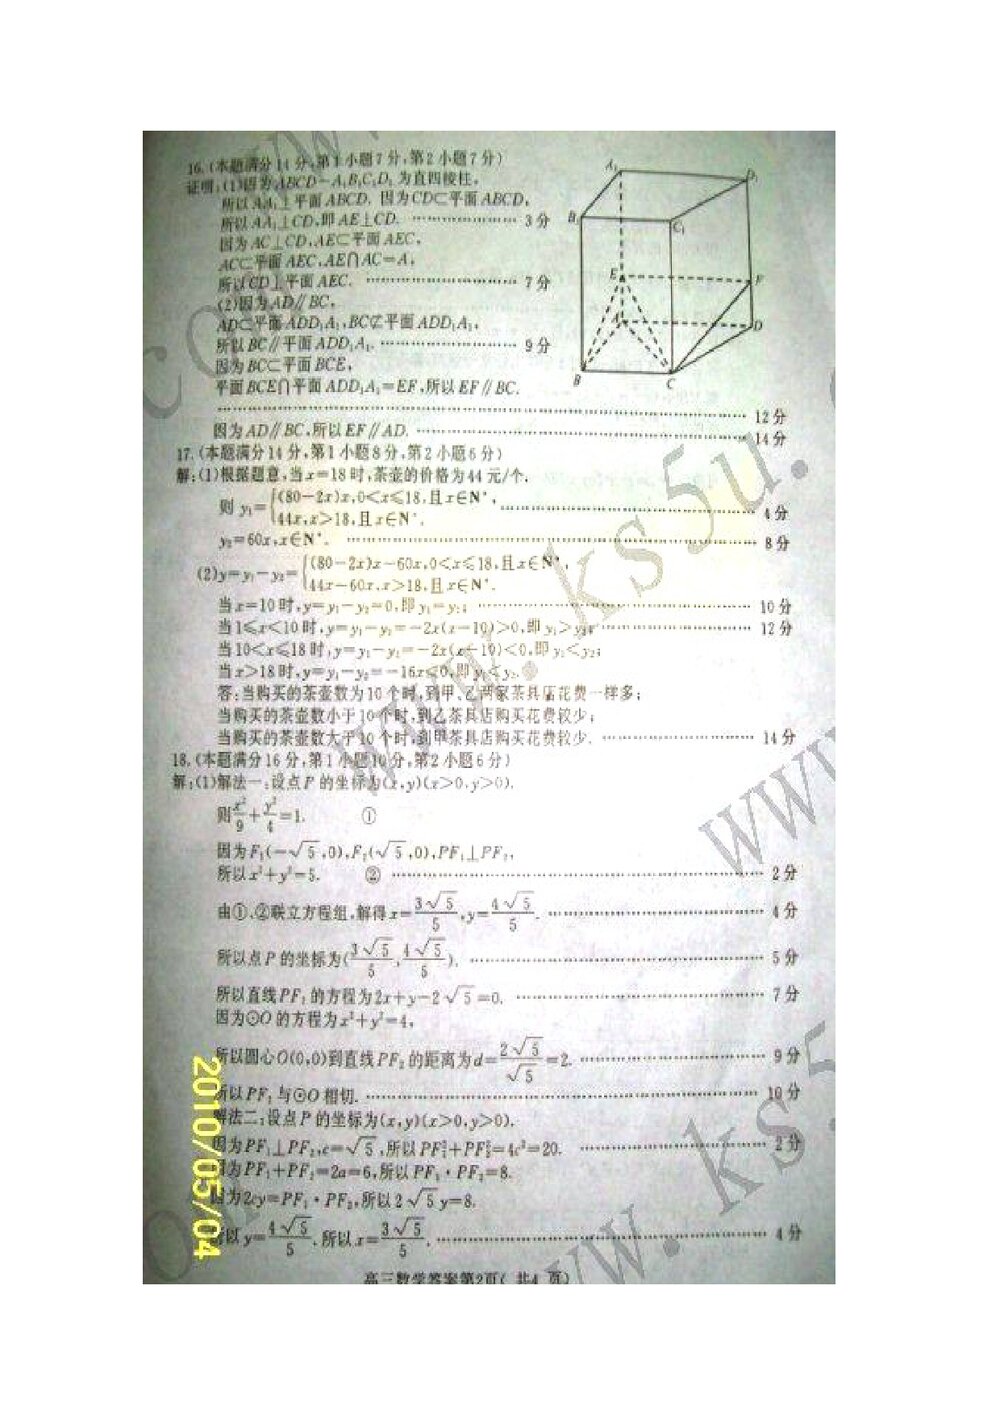 16.(本题满分14分,第1小题7分,第2小题7分)
证明:(1)因为ABCD-A₁B₁C₁D₁为直四棱柱,
所以AA₁⊥平面ABCD. 因为CD⊂平面ABCD,
所以AA₁⊥CD,即AE⊥CD. ………………… 3分
因为AC⊥CD,AE⊂平面AEC,
AC⊂平面AEC,AE∩AC=A,
所以CD⊥平面AEC. ………………… 7分
(2)因为AD∥BC,
AD⊂平面ADD₁A₁,BC⊄平面ADD₁A₁,
所以BC∥平面ADD₁A₁. ………………… 9分
因为BC⊂平面BCE,
平面BCE∩平面ADD₁A₁=EF,所以EF∥BC.
………………… 12分
因为AD∥BC,所以EF∥AD. ………………… 14分
A₁
D₁
B₁
C₁
E
F
A
D
B
C
17.(本题满分14分,第1小题8分,第2小题6分)
解:(1)根据题意,当x=18时,茶壶的价格为44元/个.
则y₁={(80-2x)x,0<x≤18,且x∈N*,
44x,x>18,且x∈N*. ………………… 4分
y₂=60x,x∈N*. ………………… 8分
(2)y=y₁-y₂={(80-2x)x-60x,0<x≤18,且x∈N*,
44x-60x,x>18,且x∈N*.
当x=10时,y=y₁-y₂=0,即y₁=y₂; ………………… 10分
当1≤x<10时,y=y₁-y₂=-2x(x-10)>0,即y₁>y₂; ………………… 12分
当10<x≤18时,y=y₁-y₂=-2x(x-10)<0,即y₁<y₂;
当x>18时,y=y₁-y₂=-16x<0,即y₁<y₂.
答:当购买的茶壶数为10个时,到甲、乙两家茶具店花费一样多;
当购买的茶壶数小于10个时,到乙茶具店购买花费较少;
当购买的茶壶数大于10个时,到甲茶具店购买花费较少. ………………… 14分
18.(本题满分16分,第1小题10分,第2小题6分)
解:(1)解法一:设点P的坐标为(x,y)(x>0,y>0).
则x²/9+y²/4=1. ①
因为F₁(-√5,0),F₂(√5,0),PF₁⊥PF₂,
所以x²+y²=5. ② ………………… 2分
由①、②联立方程组,解得x=3√5/5,y=4√5/5. ………………… 4分
所以点P的坐标为(3√5/5,4√5/5). ………………… 5分
所以直线PF₂的方程为2x+y-2√5=0. ………………… 7分
因为⊙O的方程为x²+y²=4,
所以圆心O(0,0)到直线PF₂的距离为d=2√5/√5=2. ………………… 9分
所以PF₂与⊙O相切. ………………… 10分
解法二:设点P的坐标为(x,y)(x>0,y>0).
因为PF₁⊥PF₂,c=√5,所以PF₁²+PF₂²=4c²=20. ………………… 2分
因为PF₁+PF₂=2a=6,所以PF₁·PF₂=8.
因为2cy=PF₁·PF₂,所以2√5y=8.
所以y=4√5/5.所以x=3√5/5. ………………… 4分
高三数学答案第2页(共4页)
2010/05/04
www.ks5u.com